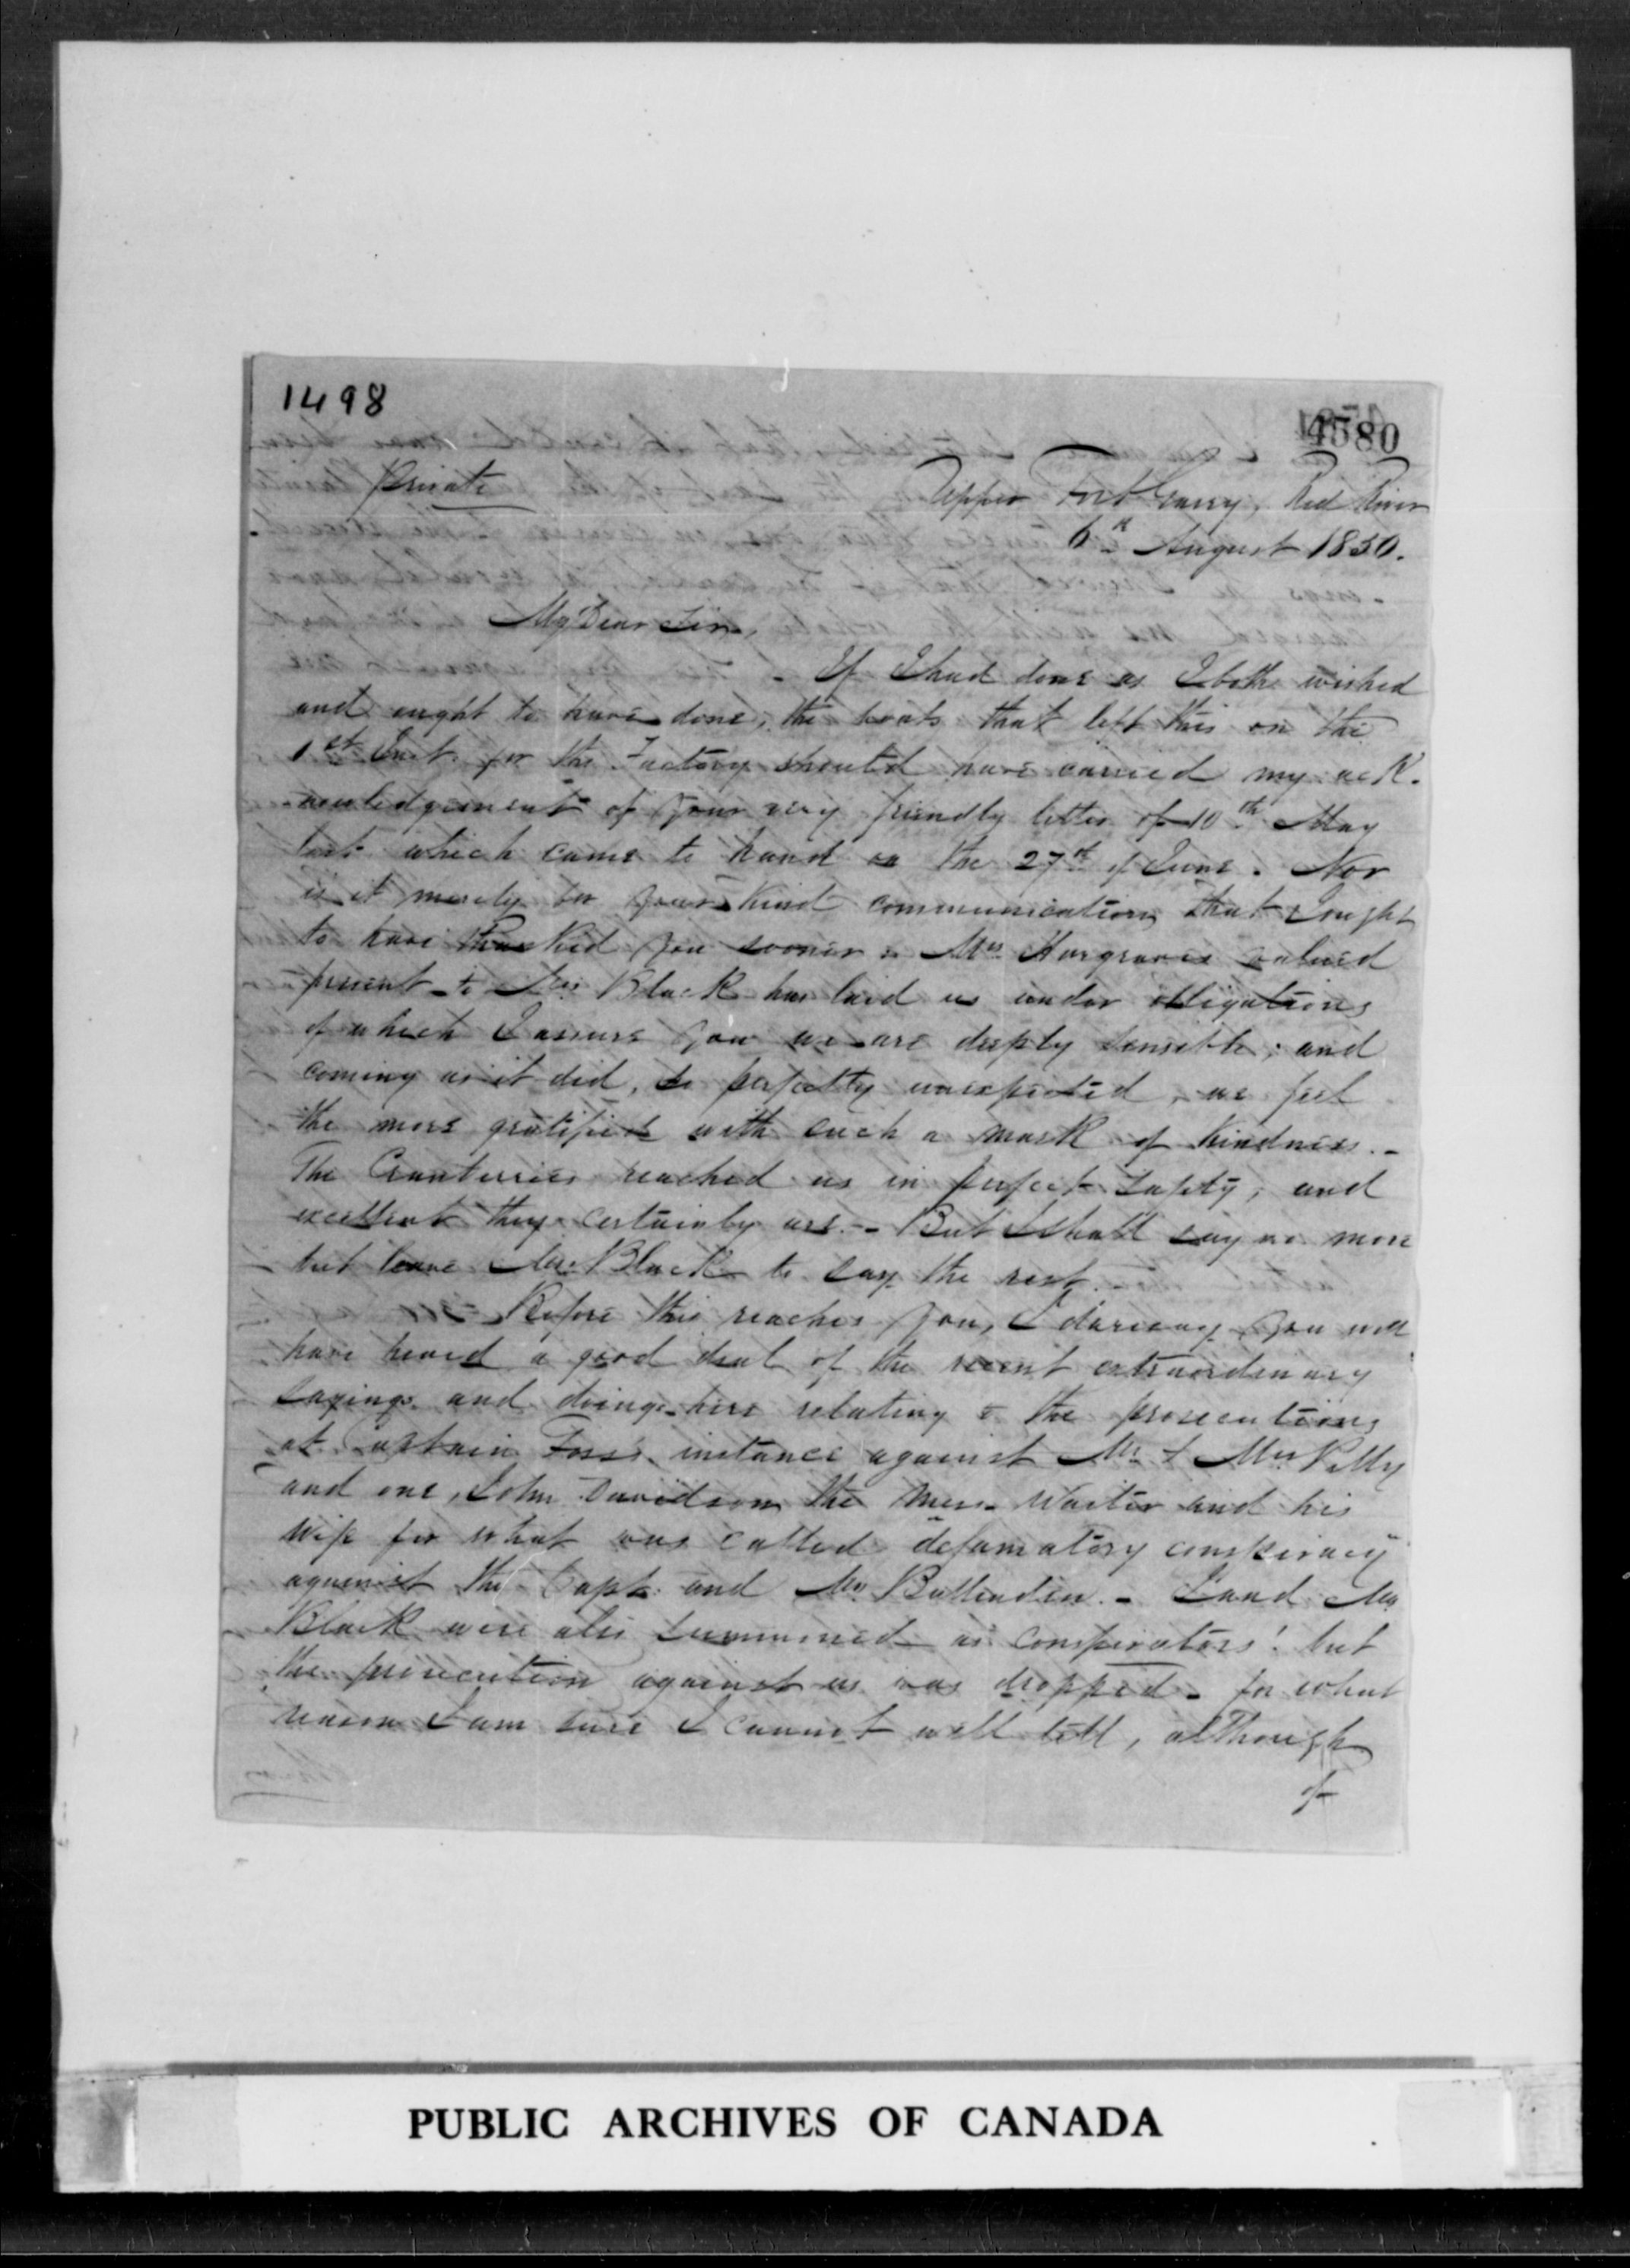 1498
4580
Private
Upper Fort Garry, Red River
6th August 1850.
My Dear Sir,
- If I had done as I both wished
and ought to have done, the boats that left this on the
1st Inst. for the Factory should have carried my ack-
nowledgement of your very friendly letter of 10th May
last which came to hand on the 27th of June. Nor
is it merely for your kind communication that I ought
to have thanked you sooner - Mrs Hargraves valued
present to Mrs Black has laid us under obligations
of which I assure you we are deeply sensible; and
coming as it did, so perfectly unexpected, we feel
the more gratified with such a mark of kindness. -
The Cranberries reached us in perfect safety, and
excellent they certainly are. - But I shall say no more
but leave Mrs Black to say the rest. -
Before this reaches you, I daresay you will
have heard a good deal of the recent extraordinary
sayings and doings here relating to the prosecutions
at Captain Foss's instance against Mr & Mrs Pelly
and one, John Davidson the Mess-Waiter and his
wife for what was called "defamatory conspiracy"
against the Capt. and Mrs Ballenden. - I and Mrs
Black were also summoned as conspirators! but
the prosecution against us was dropped - for what
reason I am sure I cannot well tell, although
of
PUBLIC ARCHIVES OF CANADA